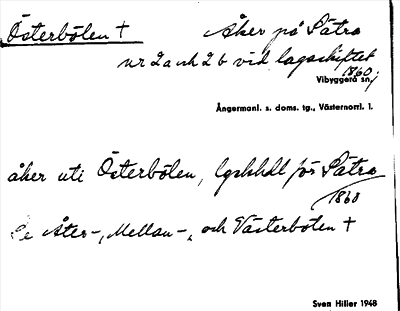 Österbölen +
Åker på Sätra
nr 2a och 2b vid lagaskiftet
1860;
Vibyggerå sn,
Ångermanl. s. doms. tg., Västernorrl. l.
åker uti Österbölen, lgskhdl för Sätra
1860
Se Åter-, Mellan-, och Västerbölen +
Sven Hiller 1948